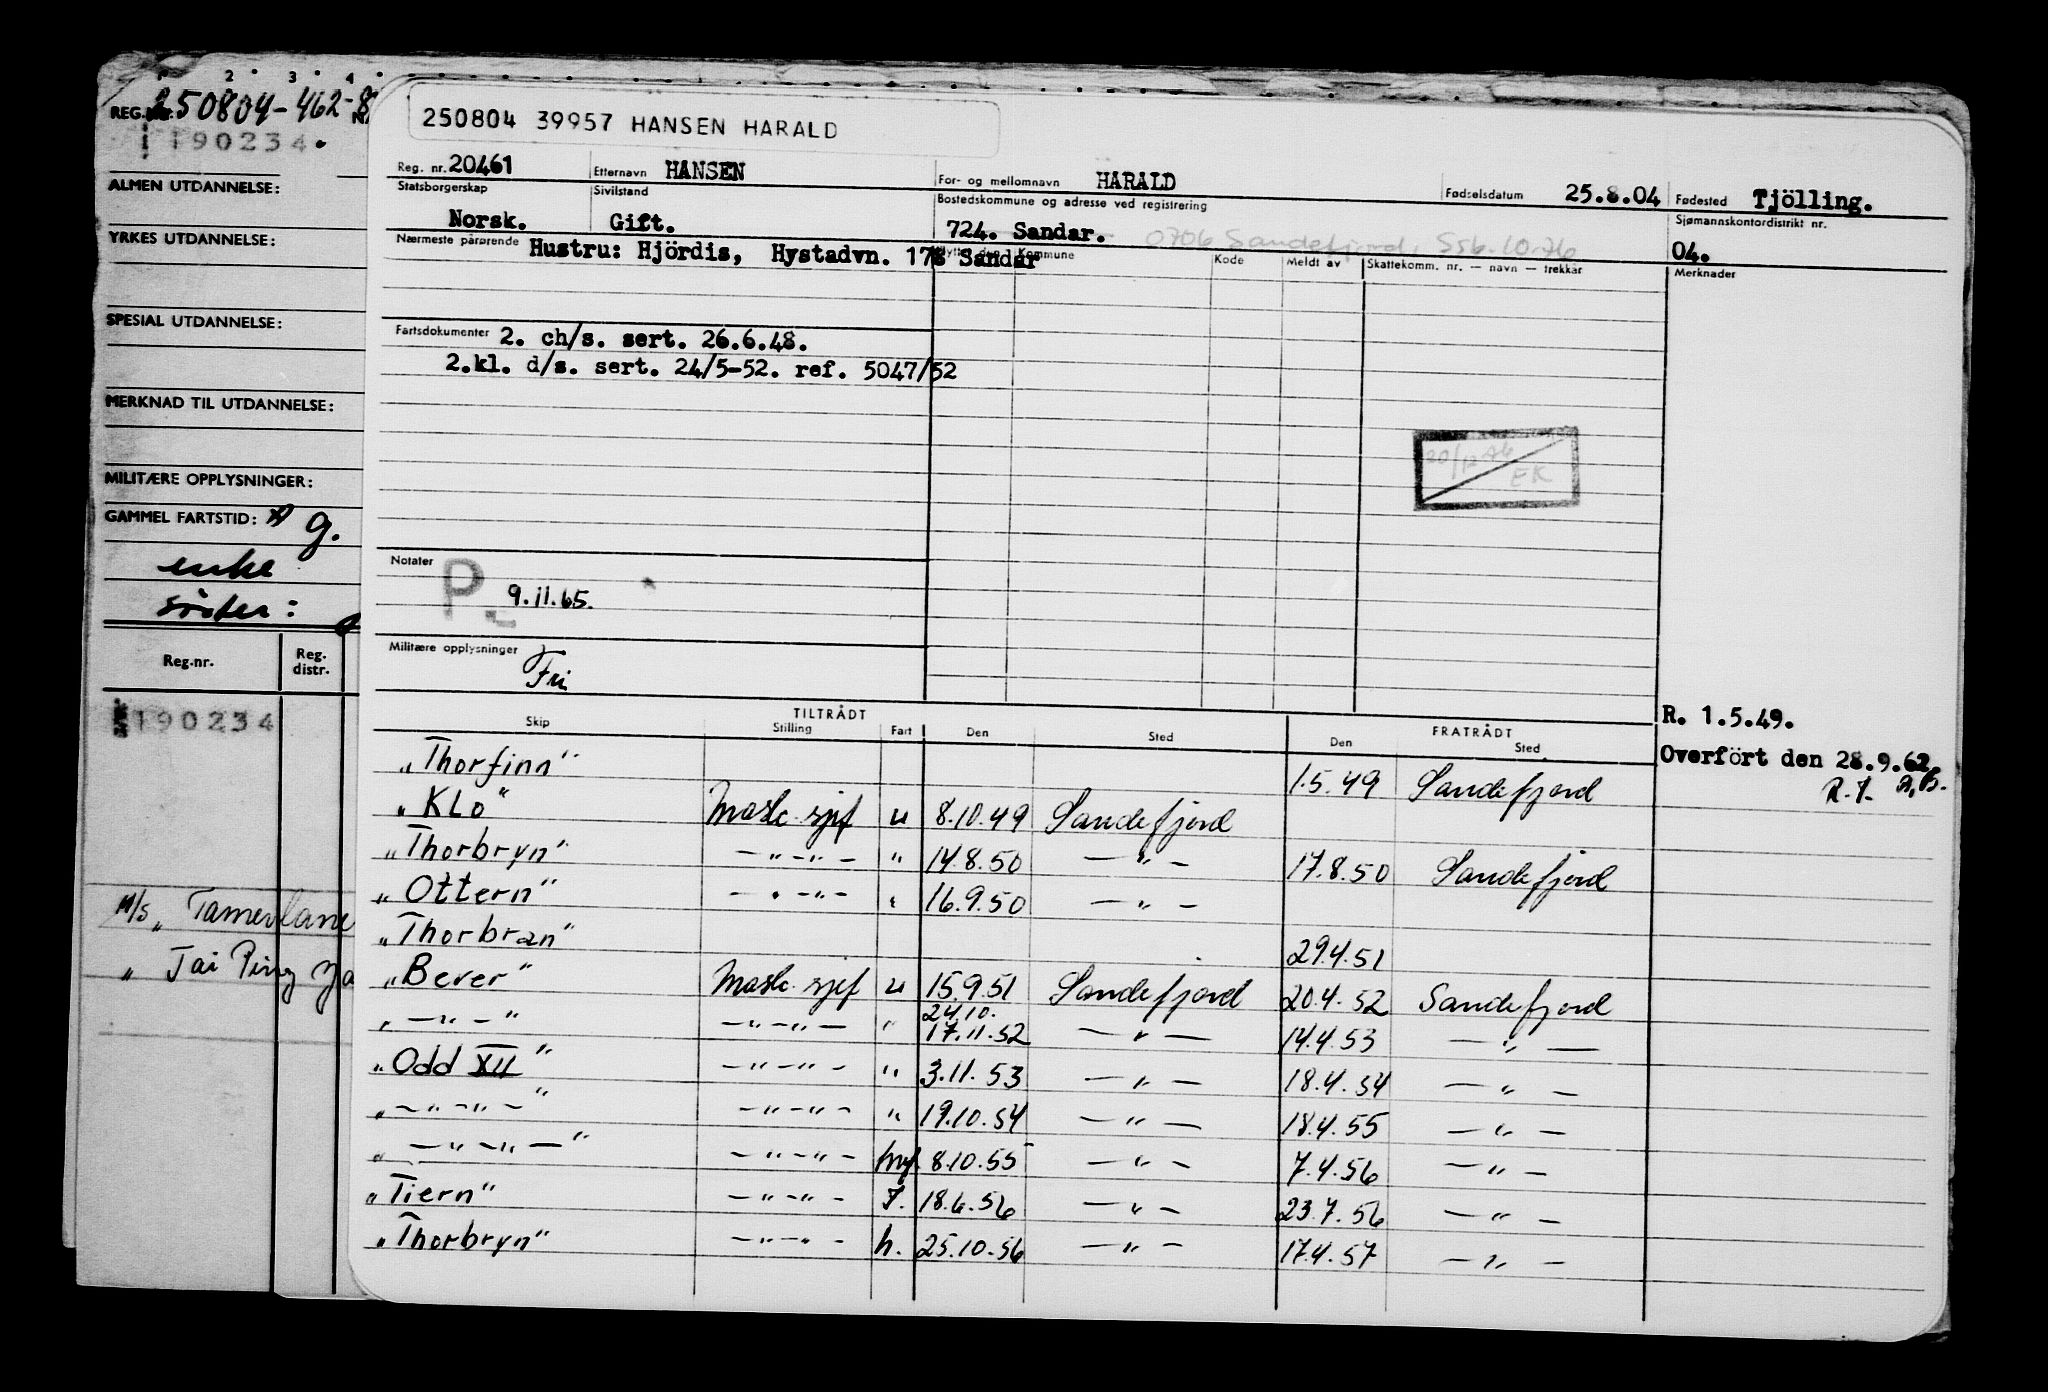 1 2 3 4
REG.NR. 250804-462-8
190234
ALMEN UTDANNELSE:
YRKES UTDANNELSE:
SPESIAL UTDANNELSE:
MERKNAD TIL UTDANNELSE:
MILITÆRE OPPLYSNINGER:
GAMMEL FARTSTID: g.
enke
søster:
Reg.nr. Reg. distr.
190234
M/S „Tamerlane
„ Tai Ping
250804 39957 HANSEN HARALD
Reg. nr. 20461 Etternavn HANSEN For- og mellomnavn HARALD Fødselsdatum 25.8.04 Fødested Tjölling.
Statsborgerskap Sivilstand Bostedskommune og adresse ved registrering Sjømannskontordistrikt nr.
Norsk. Gift. 724. Sandar. 0706 Sandefjord, Ssb.10.76 04.
Nærmeste pårørende Hustru: Hjördis, Hystadvn. 178 Sandar
Kommune Kode Meldt av Skattekomm. nr. — navn — trekkar Merknader
Fartsdokumenter 2. ch/s. sert. 26.6.48.
2.kl. d/s. sert. 24/5-52. ref. 5047/52
20/12 76
EK
Notater
P. 9.11.65.
Militære opplysninger
Fri
R. 1.5.49.
Overført den 28.9.62
TILTRÅDT FRATRÅDT
Skip Stilling Fart Den Sted Den Sted
„Thorfinn” 1.5.49 Sandefjord
„Klo” Mask. sjef u 8.10.49 Sandefjord
„Thorbryn” —„—„— „ 14.8.50 —„— 17.8.50 Sandefjord
„Ottern” —„—„— „ 16.9.50 —„—
„Thorbran” 29.4.51
„Bever” Mask. sjef u 15.9.51 Sandefjord 20.4.52 Sandefjord
„—„—” —„—„— „ 24.10. 17.11.52 —„— 14.4.53 —„—
„Odd XII” —„—„— „ 3.11.53 —„— 18.4.54 —„—
„—„—„—” —„—„— „ 19.10.54 —„— 18.4.55 —„—
„—„—„—” —„—„— hvf. 8.10.55 —„— 7.4.56 —„—
„Tiern” —„—„— I. 18.6.56 —„— 23.7.56 —„—
„Thorbryn” —„—„— h. 25.10.56 —„— 17.4.57 —„—